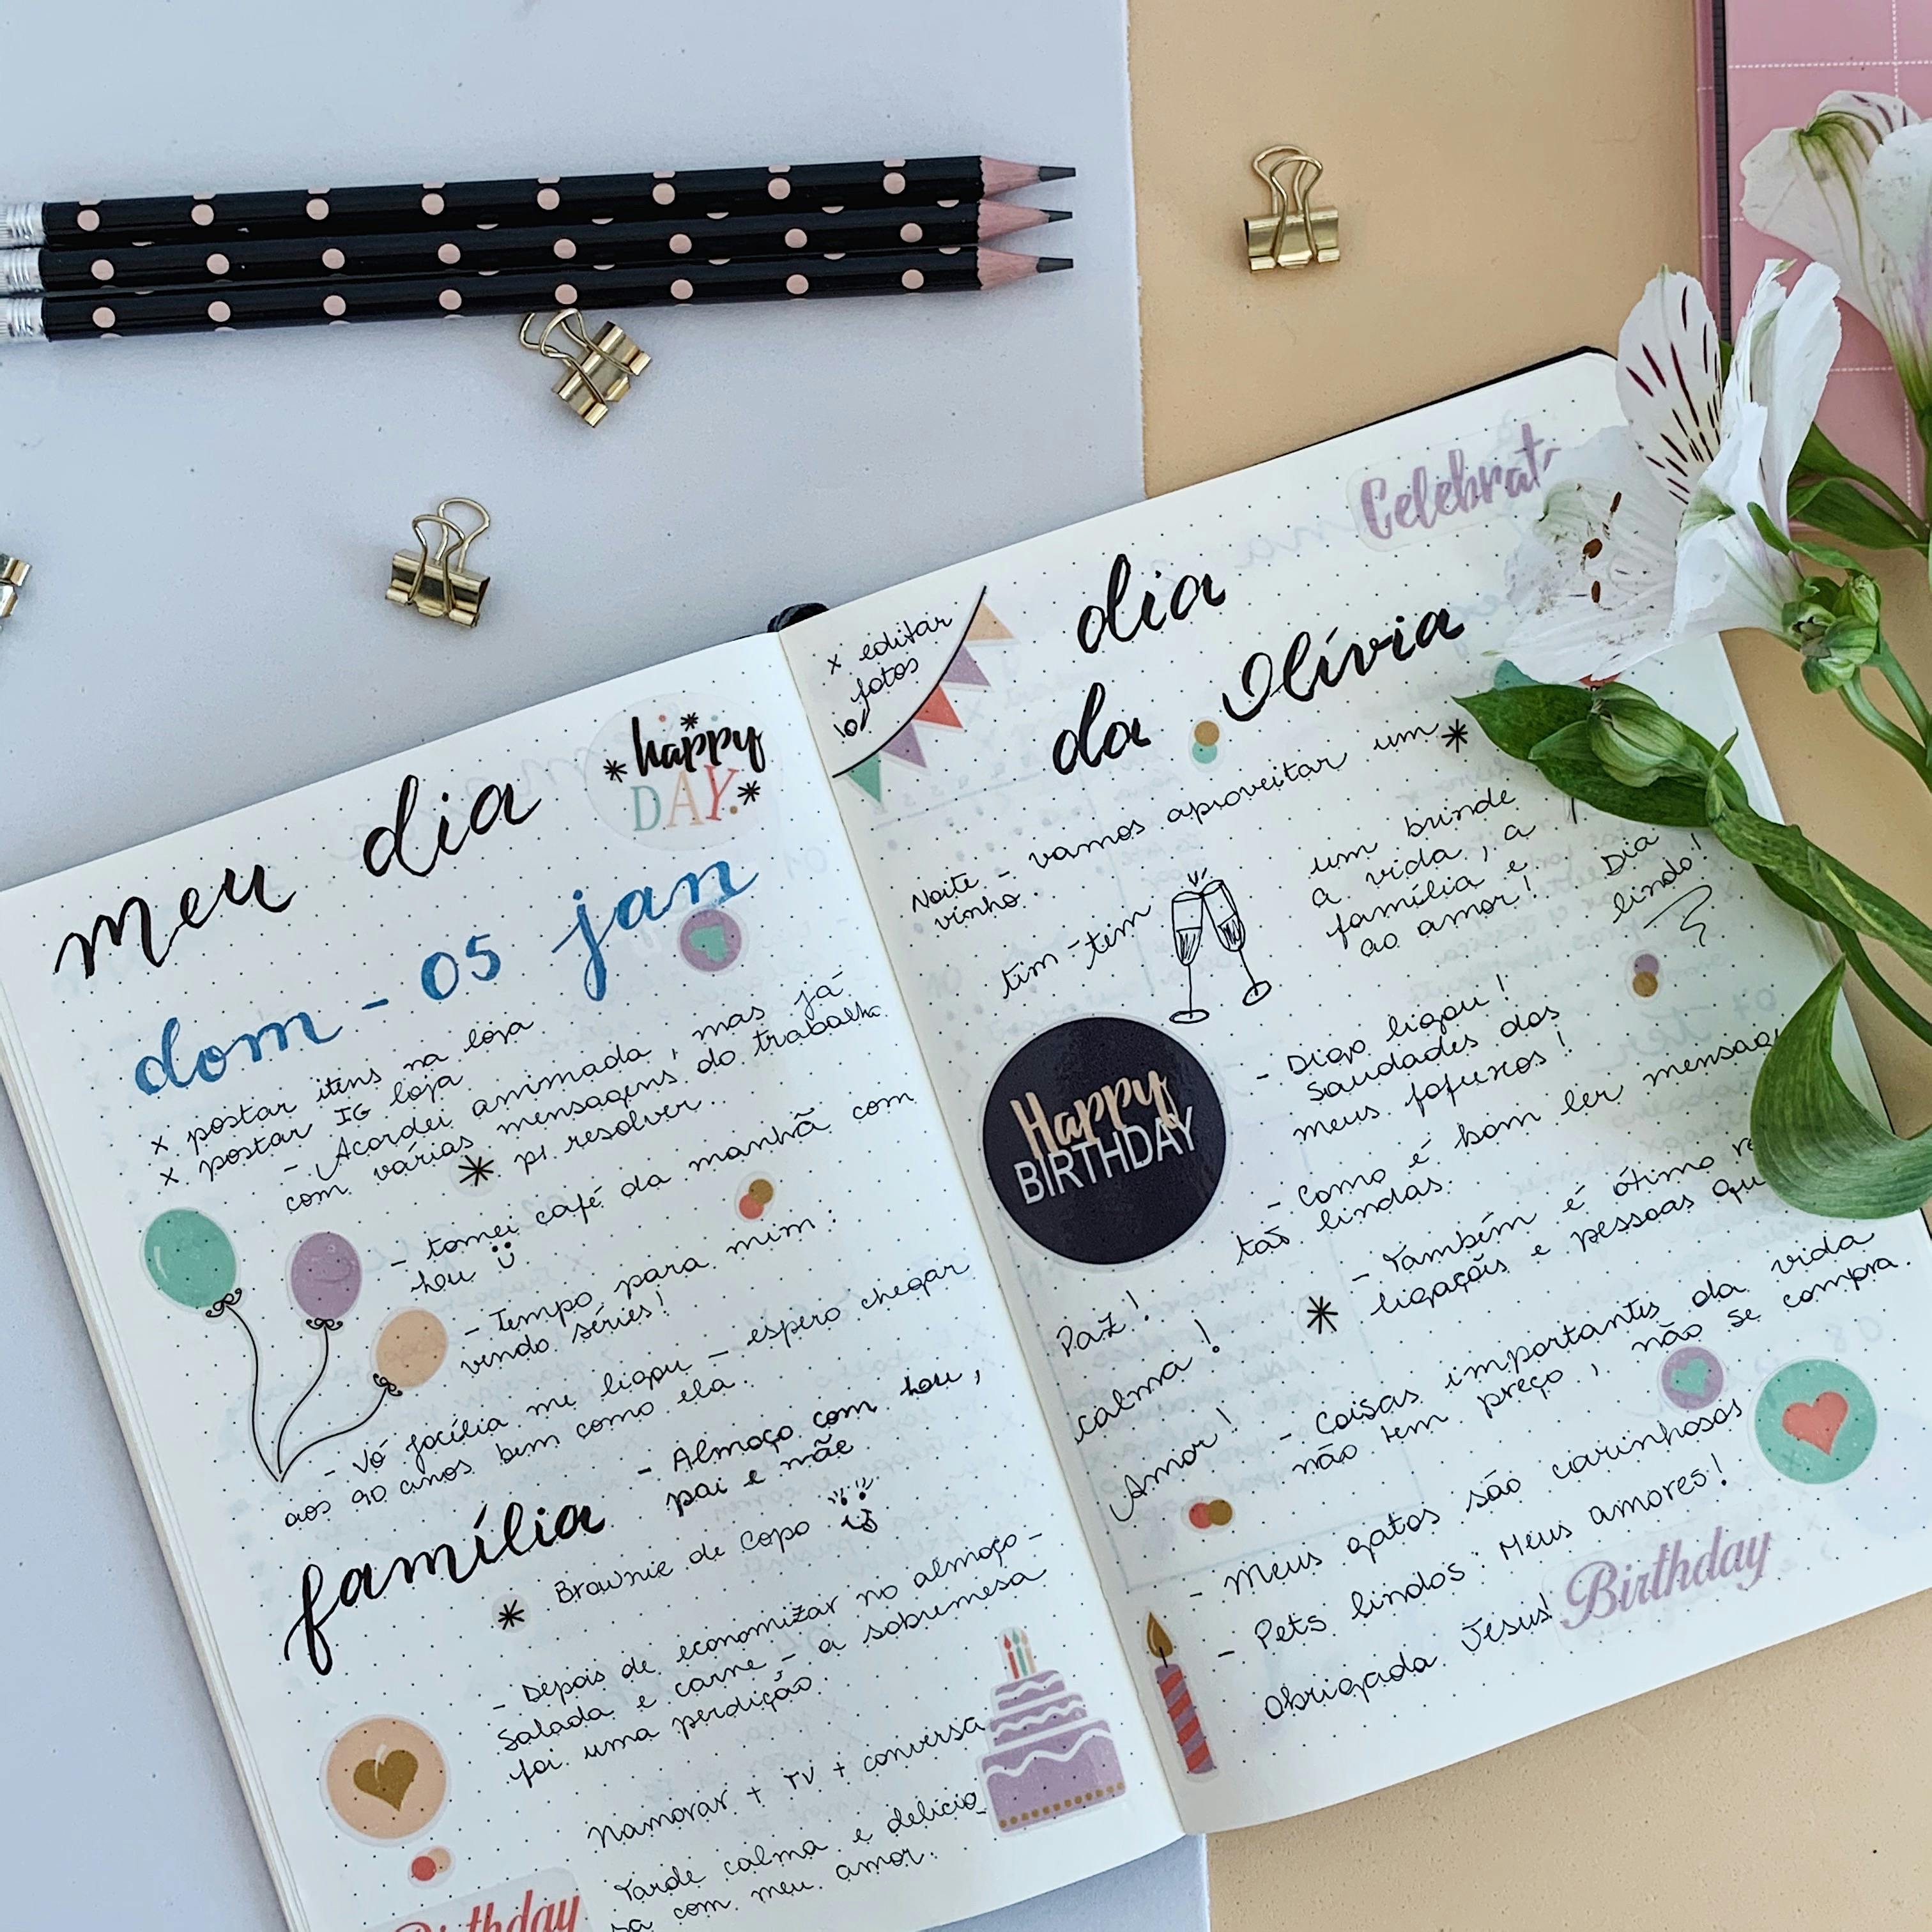 meu dia
happy
DAY.
dom - 05 jan
x postar itens na loja
x postar IG loja
- Acordei animada, mas já
com várias mensagens do trabalho
p/ resolver..
- tomei café da manhã com
- Tempo para mim:
vendo séries!
- Vó Jocília me ligou - espero chegar
aos 90 anos bem como ela.
família
- Almoço com
pai e mãe
Brownie de copo
- Depois de economizar no almoço -
Salada e carne - a sobremesa
foi uma perdição.
Namorar + TV + conversa
Tarde calma e delicio_
sa com meu amor.
Birthday
x editar
fotos
Celebrat
dia
da Olívia
Noite - vamos aproveitar um
vinho.
tim-tim
um brinde
a vida, a
família e
ao amor!
Dia
lindo!
Happy
BIRTHDAY
- Diogo ligou!
Saudades dos
meus fofuxos!
- Como é bom ler
tão lindas.
- Também é ótimo
ligações e pessoas
Paz!
calma!
Amor!
- Coisas importantes da vida
não tem preço, não se compra.
- Meus gatos são carinhosos
- Pets lindos: Meus amores!
Obrigada Jesus!
Birthday